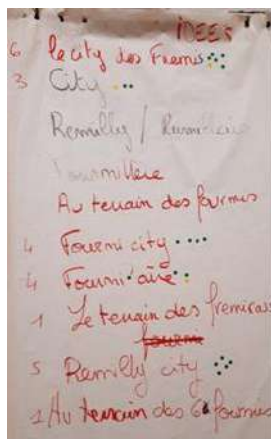 IDEES
6 le city des Fremis
3 City
Remilly /
Au terrain des fourmis
4 Fourmi city
4 Fourmi
1 Le terrain des fremirais
fourmi
5 Remilly city
1 Au terrain des 6 fourmis